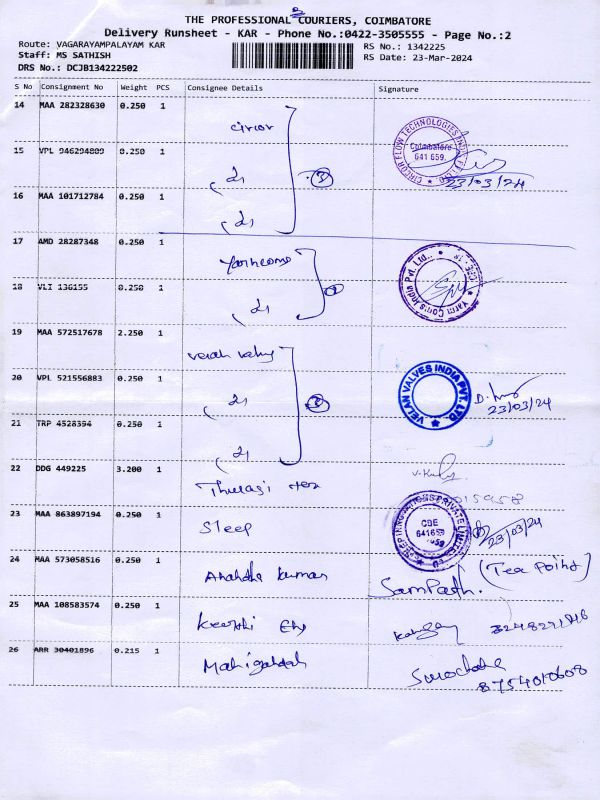 THE PROFESSIONAL COURIERS, COIMBATORE
Delivery Runsheet - KAR - Phone No.:0422-3505555 - Page No.:2
Route: VAGARAYAMPALAYAM KAR
RS No.: 1342225
Staff: MS SATHISH
RS Date: 23-Mar-2024
DRS No.: DCJB134222502
S No Consignment No Weight PCS Consignee Details Signature
14 MAA 282328630 0.250 1
circor
CIRCOR FLOW TECHNOLOGIES INDIA PVT. LTD.
Coimbatore
641 659.
23/03/24
15 VPL 946294809 0.250 1
3
16 MAA 101712784 0.250 1
17 AMD 28287348 0.250 1
Yarn Coms India Pvt. Ltd.,
18 VLI 136155 0.250 1
19 MAA 572517678 2.250 1
velan valves
VELAN VALVES INDIA PVT. LTD
20 VPL 521556883 0.250 1
3
23/03/24
21 TRP 4528394 0.250 1
22 DDG 449225 3.200 1
Thulasi
23 MAA 863897194 0.250 1 Sleep
SLEEP INNOVATIONS PRIVATE LIMITED
CBE
641659
23/03/24
24 MAA 573058516 0.250 1 kumar
Sampath. (Tea Point)
25 MAA 108583574 0.250 1
26 ARR 30401896 0.215 1
8754010608